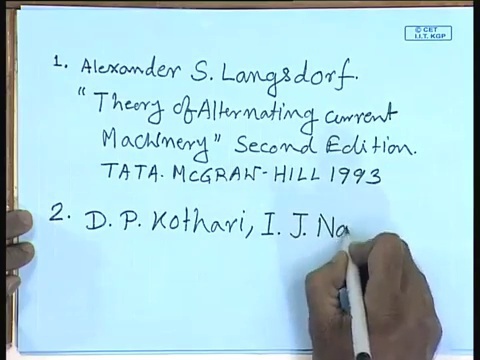 © CET
I.I.T. KGP
1. Alexander S. Langsdorf.
"Theory of Alternating current
Machinery" Second Edition.
TATA. McGRAW-HILL 1993
2. D. P. Kothari, I. J. Na